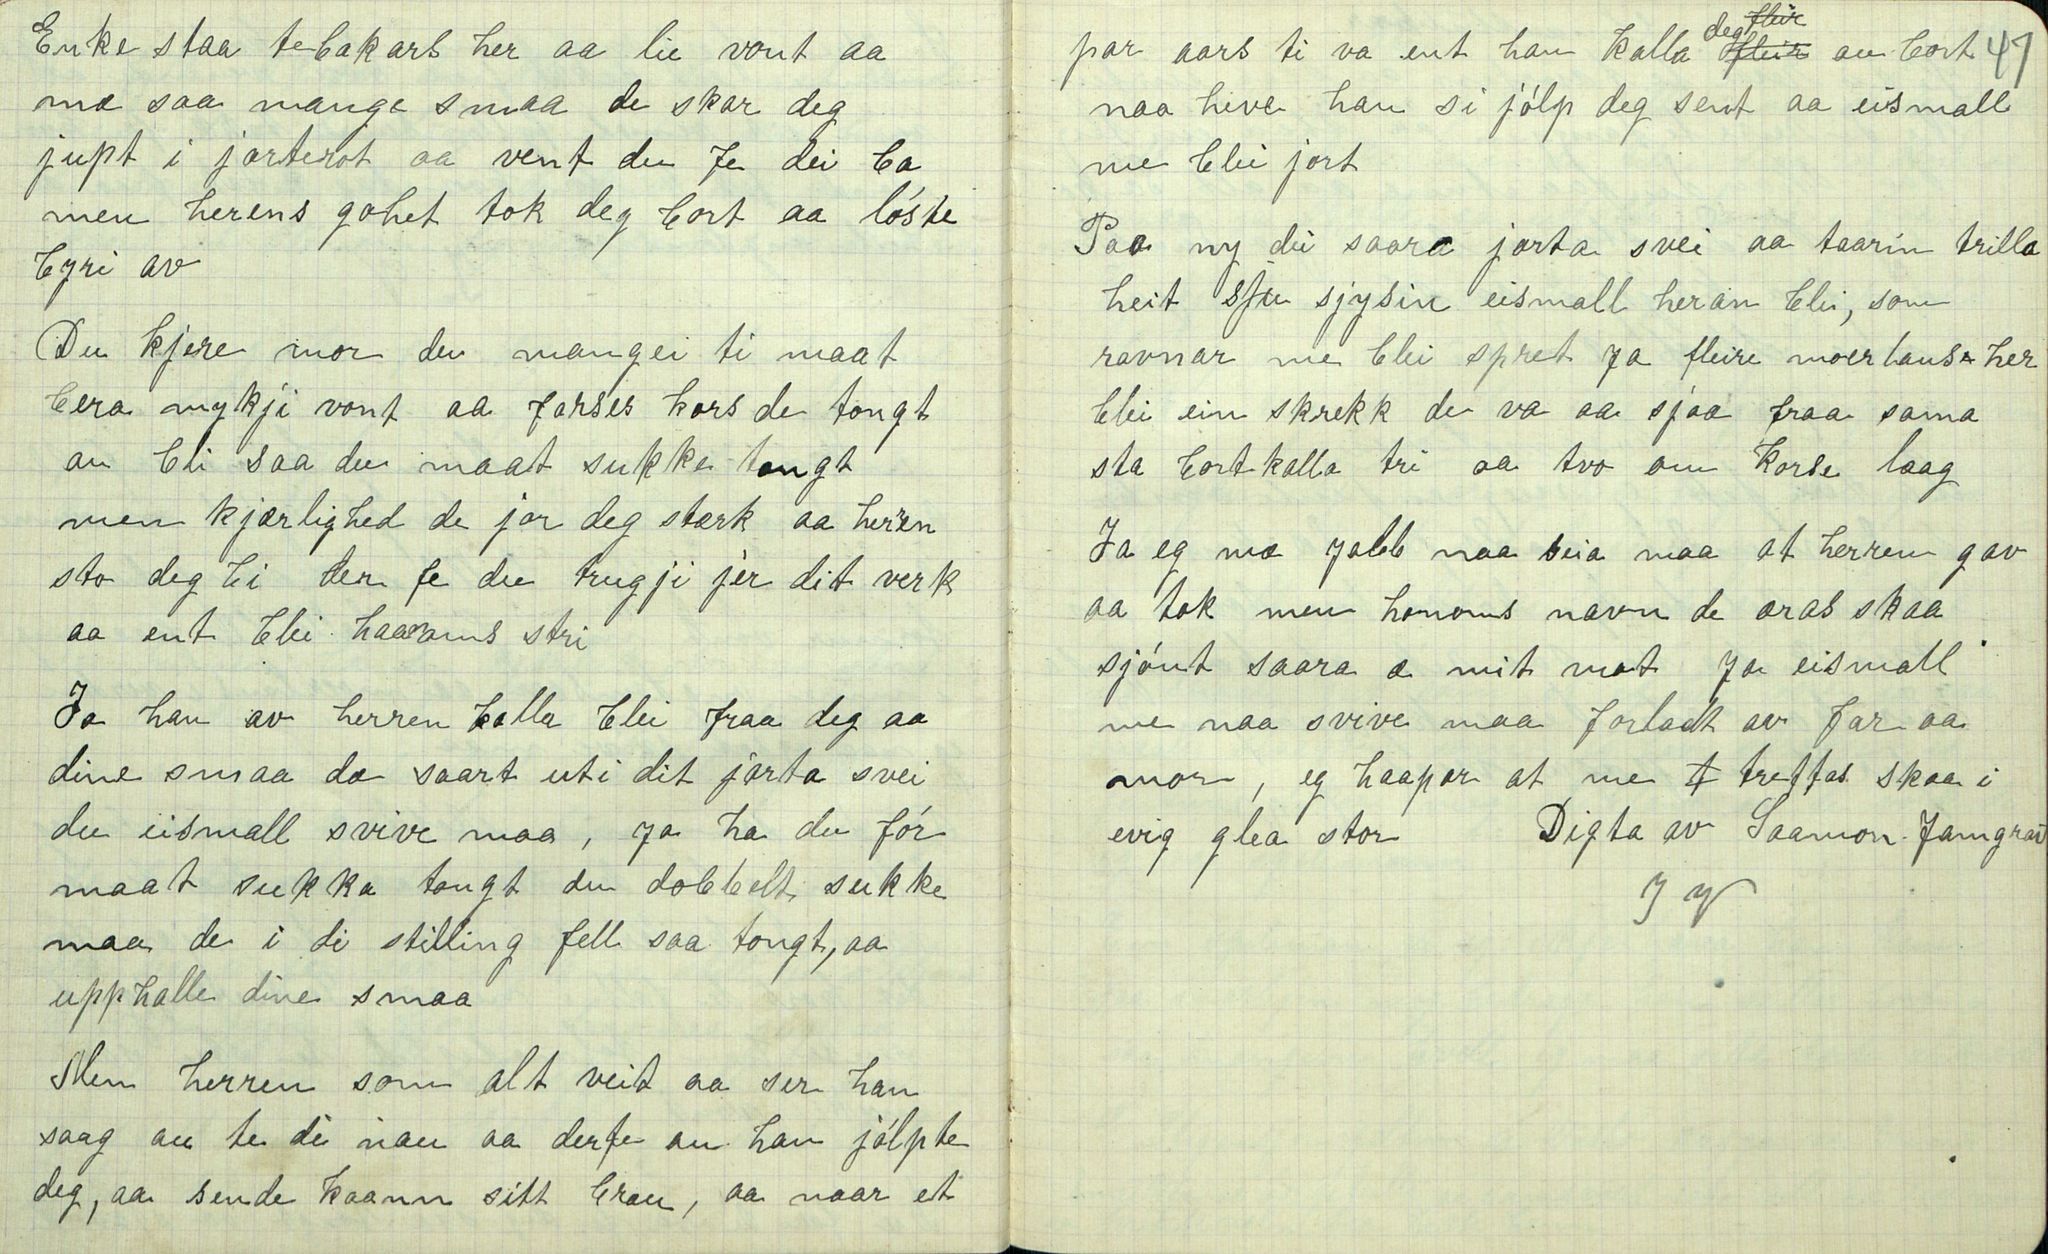 Enke staa te bakars her aa lie vont aa
mæ saa mange smaa de skar deg
jupt i jarterot aa vent du fe dei ba
men herens gohet tok deg bort aa lóste
byri av
Du kjere mor du mangei ti maat
bera mykji vont aa farses kors de tongt
au bli saa du maat sukke tongt
men kjærlighed de jor deg stærk aa herren
sto deg bi der fe du trugji jer dit verk
aa ent blei haarams stri
Ja han av herren kalla blei fraa deg aa
dine smaa dæ saart uti dit jarta svei
du eismall svive maa, ja ha du fór
maat sukka tongt du dobbelt sukke
maa de i di stilling fell saa tongt, aa
upphalle dine smaa
Men herren som alt veit aa ser han
saag au te di nau aa derfe au han jólpte
deg, aa sende kaann sitt brau, aa naar et
par aars ti va ent han kalla deg au bort 47
naa heve han si jólp deg sent aa eismall
me blei jort
Paa ny dei saara jarta svei aa taarin trilla
heit sju sjysin eismall heran blei, som
ravnar me blei spret ja fleire moerlause her
blei ein skrekk de va aa sjaa fraa sama
sta bortkalla tri aa tvo om korse laag
Ja eg mæ Jobb naa seia maa at herren gav
aa tok men honoms navn de æras skaa
sjónt saara æ mit mot ja eismall
me naa svive maa forladt av far aa
mor, eg haapar at me treffas skaa i
evig glea stor Digta av Saamon Jamgrav